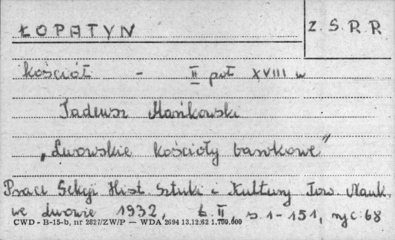 ŁOPATYN
Z.S.R.R
kościół - II poł XVIII w
Tadeusz Mańkowski
„Lwowskie kościoły barokowe"
Prace Sekcji Hist. Sztuki i Kultury Tow. Nauk.
we Lwowie 1932, t. II s. 1-151, ryc 68
CWD - B-15-b, nr 2827/ZW/P — WDA 2694 13.12.62 1.700.000